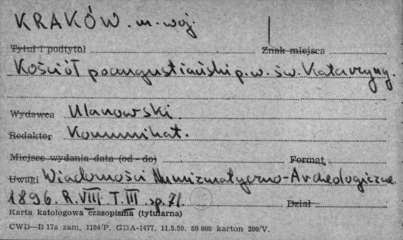 KRAKÓW. m. woj.
Tytuł i podtytuł Znak miejsca
Kościół poaugustiański p.w. św. Katarzyny.
Wydawca Ulanowski.
Redaktor Komunikat.
Miejsce wydania data (od - do) Format
Uwagi Wiadomości Numizmatyczno-Archeologiczne
1896. R. VIII. T. III. sp. 71. Dział
Karta katologowa czasopisma (tytularna)
CWD—B 17a zam, 1194/P. GDA-1477, 11.5.59. 89 000 karton 200/V.